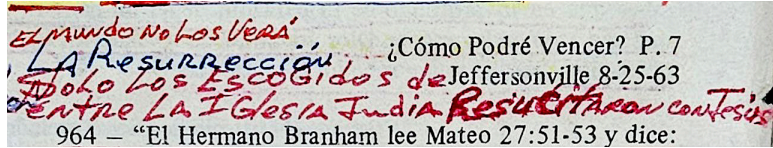 EL MUNDO NO LOS VERÁ
LA RESURRECCIÓN ¿Cómo Podré Vencer? P. 7
SOLO LOS ESCOGIDOS de Jeffersonville 8-25-63
ENTRE LA IGLESIA Judia Resucitaron con Jesús
964 – “El Hermano Branham lee Mateo 27:51-53 y dice: